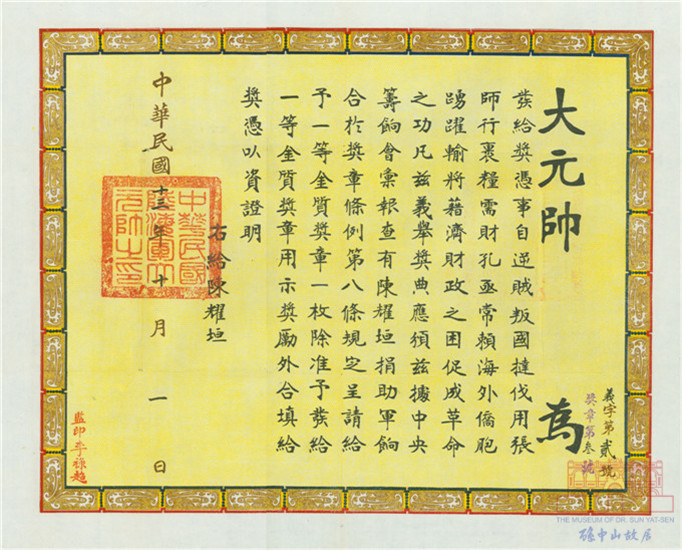 大元帥 為
發給獎憑事自逆賊叛國撻伐用張
師行裹糧需財孔亟常賴海外僑胞
踴躍輸將藉濟財政之困促成革命
之功凡茲義舉獎典應頒茲據中央
籌餉會彙報查有陳耀垣捐助軍餉
合於獎章條例第八條規定呈請給
予一等金質獎章一枚除准予發給
一等金質獎章用示獎勵外合填給
獎憑以資證明
右給陳耀垣
中華民國十三年十月一日
中華民國
陸海軍大
元帥之印
義字第貳號
獎章第叁號
監印李祿超
THE MUSEUM OF DR. SUN YAT-SEN
孫中山故居